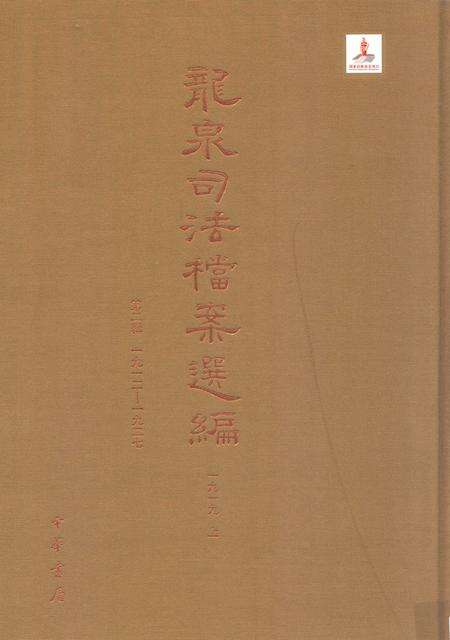 龍泉司法檔案選編
第二輯 一九一二—一九二七
一九一九 上
中華書局